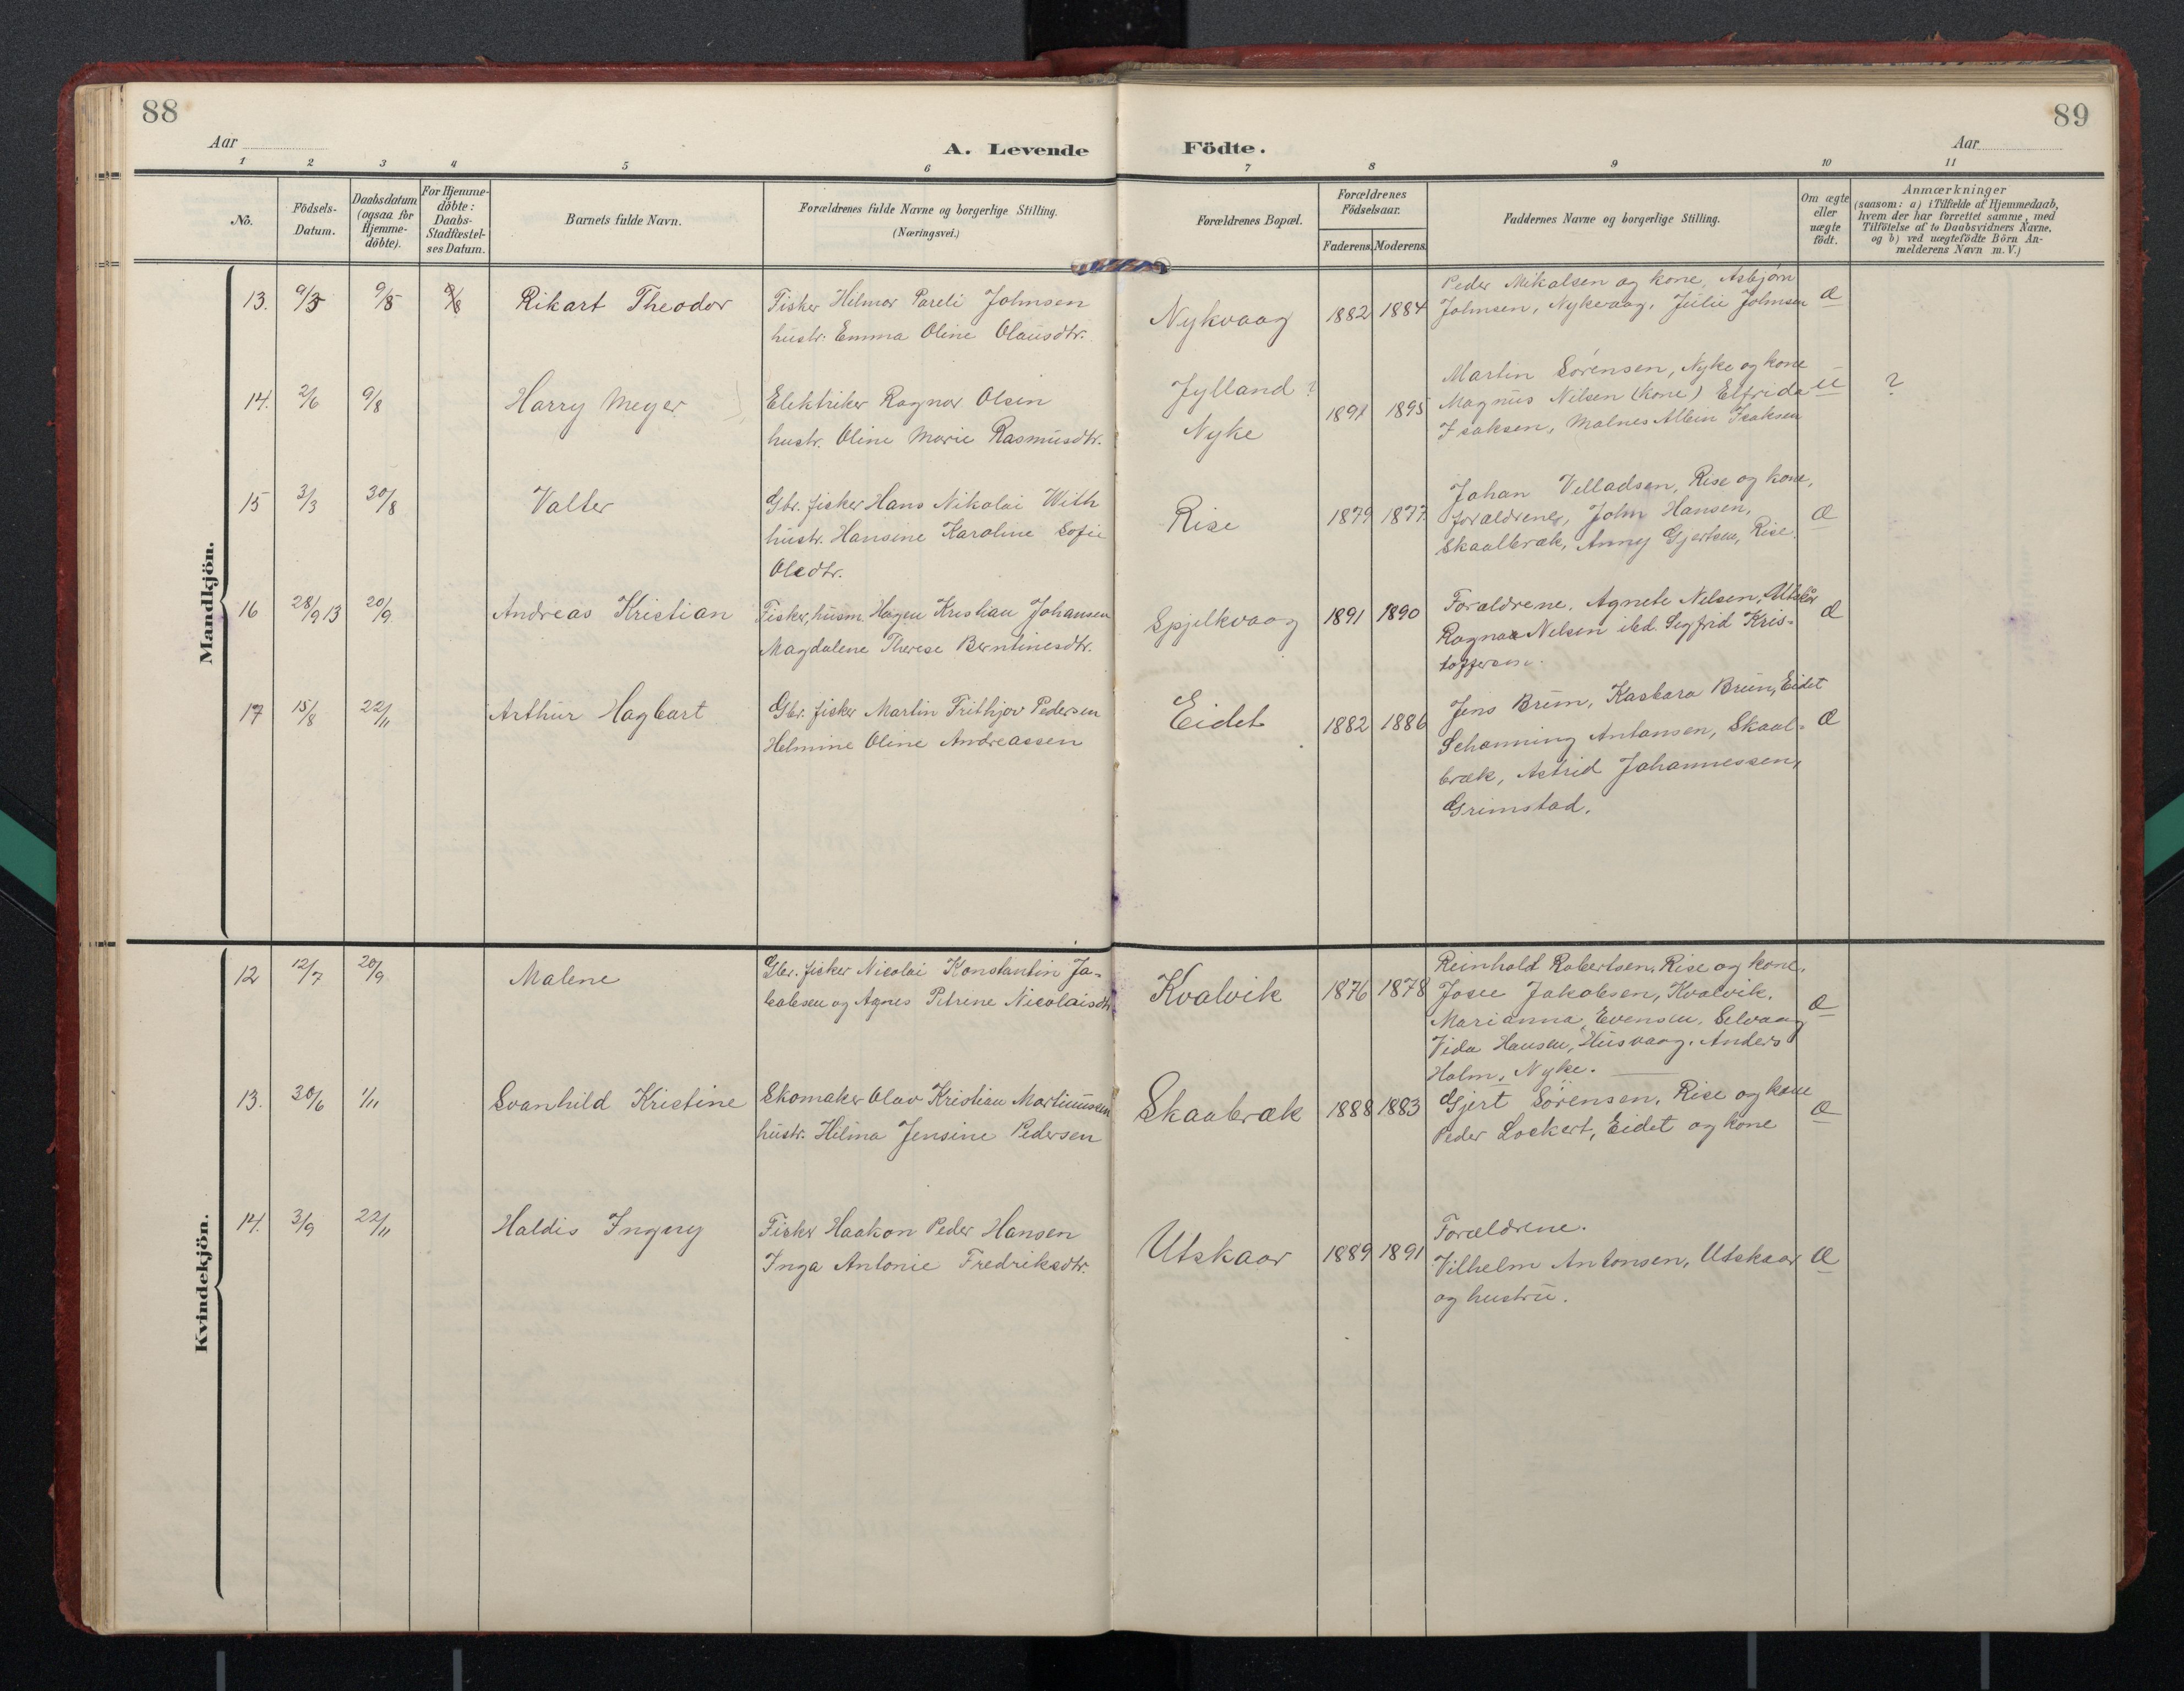 88
89
Aar
A. Levende Födte.
Aar
1 2 3 4 5 6 7 8 9 10 11
No.
Födsels-Datum.
Daabsdatum (ogsaa for Hjemme-döbte).
For Hjemme-döbte: Daabs-Stadfæstel-ses Datum.
Barnets fulde Navn.
Forældrenes fulde Navne og borgerlige Stilling.
(Næringsvei.)
Forældrenes Bopæl.
Forældrenes Födselsaar.
Faderens. Moderens.
Faddernes Navne og borgerlige Stilling.
Om ægte eller uægte födt.
Anmærkninger
(saasom: a) i Tilfælde af Hjemmedaab,
hvem der har forrettet samme, med
Tilföielse af to Daabsvidners Navne.
og b) ved uægtefödte Börn An-
melderens Navn m. V.)
Mandkjön.
13. 9/3 9/8 Rikart Theodor
Fisker Hilmar Pareli Johnsen
hustr. Emma Oline Olausdtr.
Nykvaag 1882 1884
Peder Mikalsen og kone, Asbjørn
Johnsen, Nykvaag, Julie Johnsen
Æ
14. 2/6 9/8 Harry Meyer
Elektriker Ragnar Olsen
hustr. Oline Marie Rasmusdtr.
Jylland?
Nyke
1895
Martin Sörensen, Nyke og kone
Magnus Nilsen (kone) Elfrida
Isaksen, Malnes Albin Isaksen
U
?
15 3/3 30/8 Valter
Gbr. fisker Hans Nikolai With
hustr. Hansine Karoline Sofie
Oledtr.
Rise 1879 1877
Johan Velladsen, Rise og kone,
forældrene, John Hansen,
Skaalbræk, Anny Gjertsen, Rise.
Æ
16 28/9 13 20/9 Andreas Kristian
Fisker, husm. Hagen Kristian Johansen
Magdalene Therese Berntinesdtr.
Spjelkvaag 1891 1890
Forældrene, Agnete Nelsen, Utskår
Ragna Nelsen ibd. Segfrid Kris-
toffersen.
Æ
17 15/8 22/11 Arthur Hagbart
Gbr. fisker Martin Frithjov Pedersen
Helmine Oline Andreassen
Eidet 1882 1886
Jens Brun, Kasbara Brun, Eidet
Schanning Antonsen, Skaal-
bræk, Astrid Johannessen,
Grimstad.
Æ
Kvindekjön.
12 12/7 20/9 Malene
Gbr. fisker Nicolai Konstantin Ja-
kobsen og Agnes Petrine Nicolaisdtr.
Kvalvik 1876 1878
Reinhold Robertsen, Rise og kone.
Josee Jakobsen, Kvalvik.
Marianna Evensen, Selvaag
Vida Hansen, Husvaag. Anders
Holm, Nyke.
Æ
13. 30/6 1/11 Svanhild Kristine
Skomaker Olav Kristian Martinussen
hustr. Hilma Jensine Pedersen
Skaabræk 1888 1883
Gjert Sörensen, Rise og kone
Peder Lockert, Eidet og kone
Æ
14. 3/9 22/11 Haldis Ingny
Fisker Haakon Peder Hansen
Inga Antonie Fredriksdtr.
Utskaar 1889 1891
Forældrene.
Vilhelm Antonsen, Utskaar
og hustru.
Æ